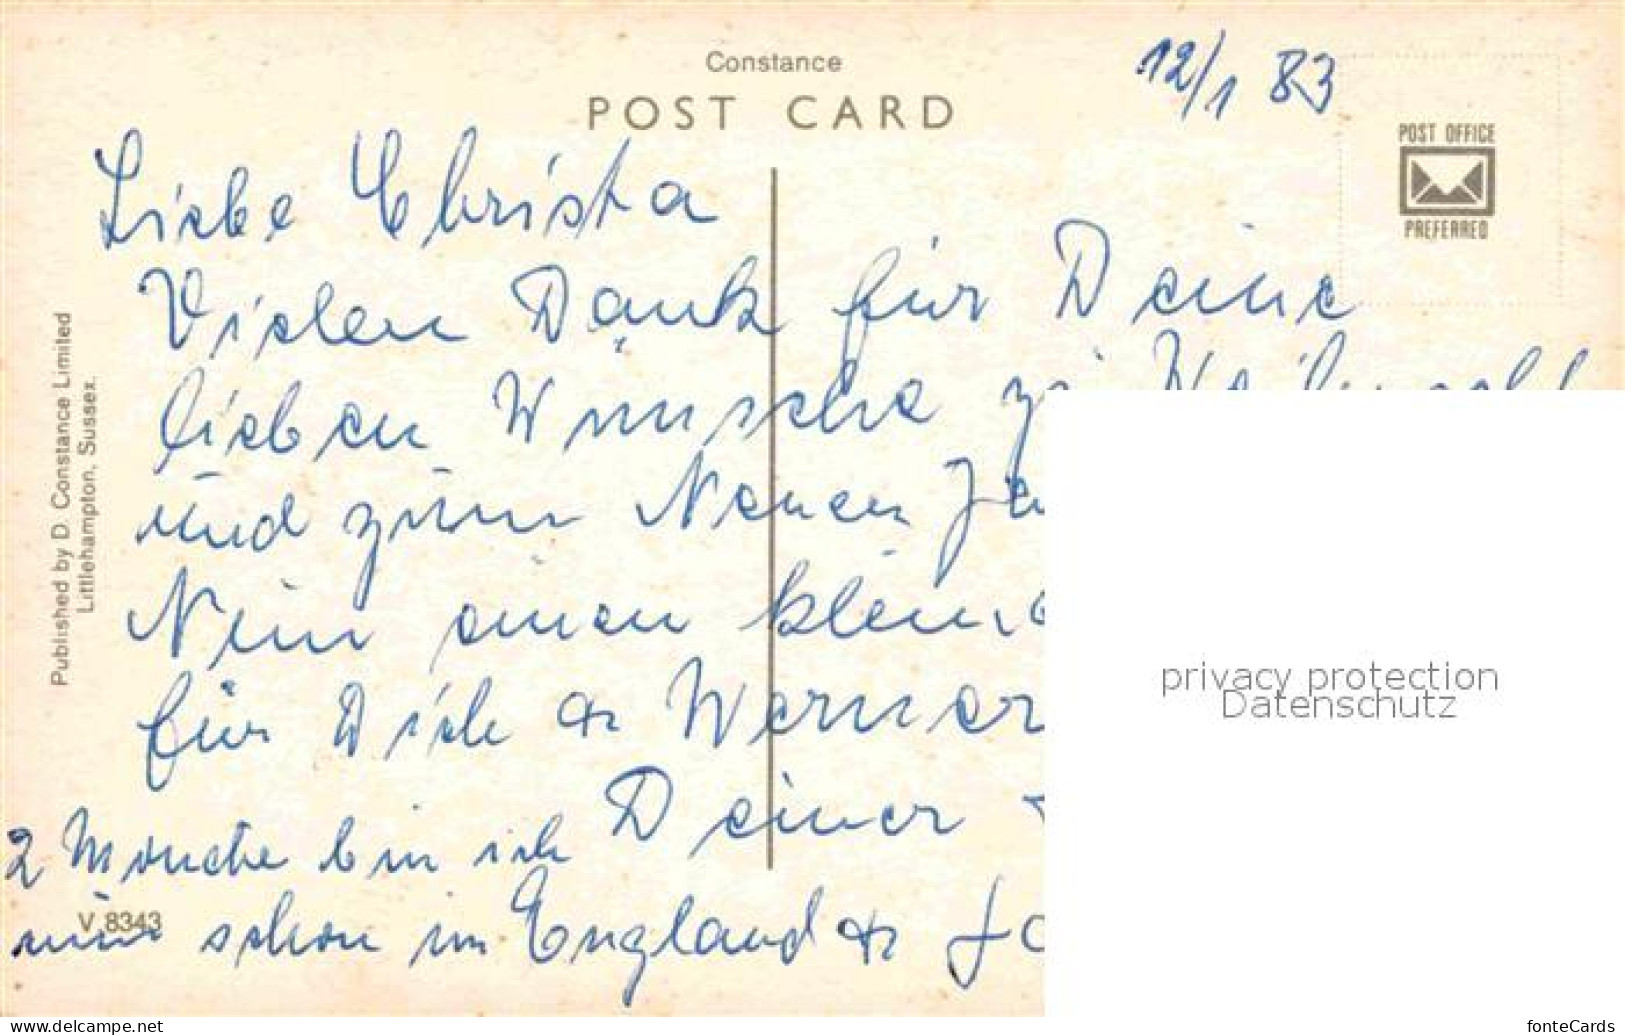 Constance
POST CARD
12/1 83
POST OFFICE
PREFERRED
Liebe Christa
Vielen Dank für Deine
lieben Wünsche zu Weihnacht
und zum Neuen Ja
Nun einen kleine
für Dich & Werner
Deiner
2 Monate bin ich
nun schon in England &
Published by D. Constance Limited
Littlehampton, Sussex.
V 8343
privacy protection
Datenschutz
www.delcampe.net
fonteCards